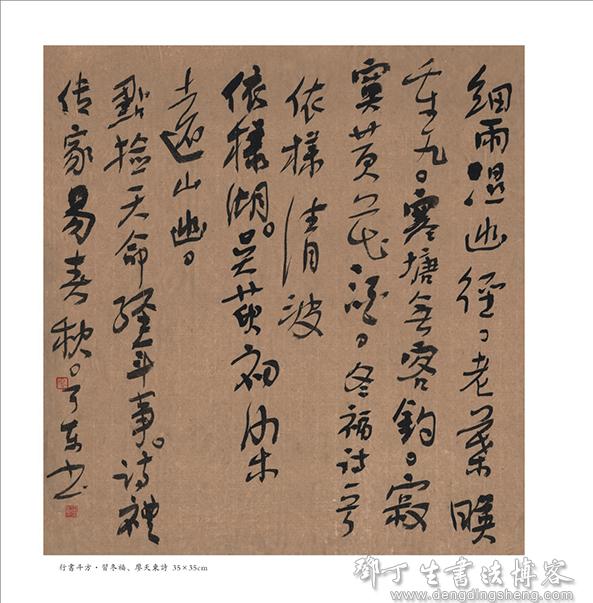 細雨濕幽徑。老葉暎
九。寒塘無客釣。寂
寞黄花。冬福诗一首
依樣清波
依樣湖。荻初
山幽。
點檢天命經年事。詩禮
传家易春秋。东书
行書斗方·習冬福、廖天東詩 35×35cm
鄧丁生書法博客
www.dengdingsheng.com